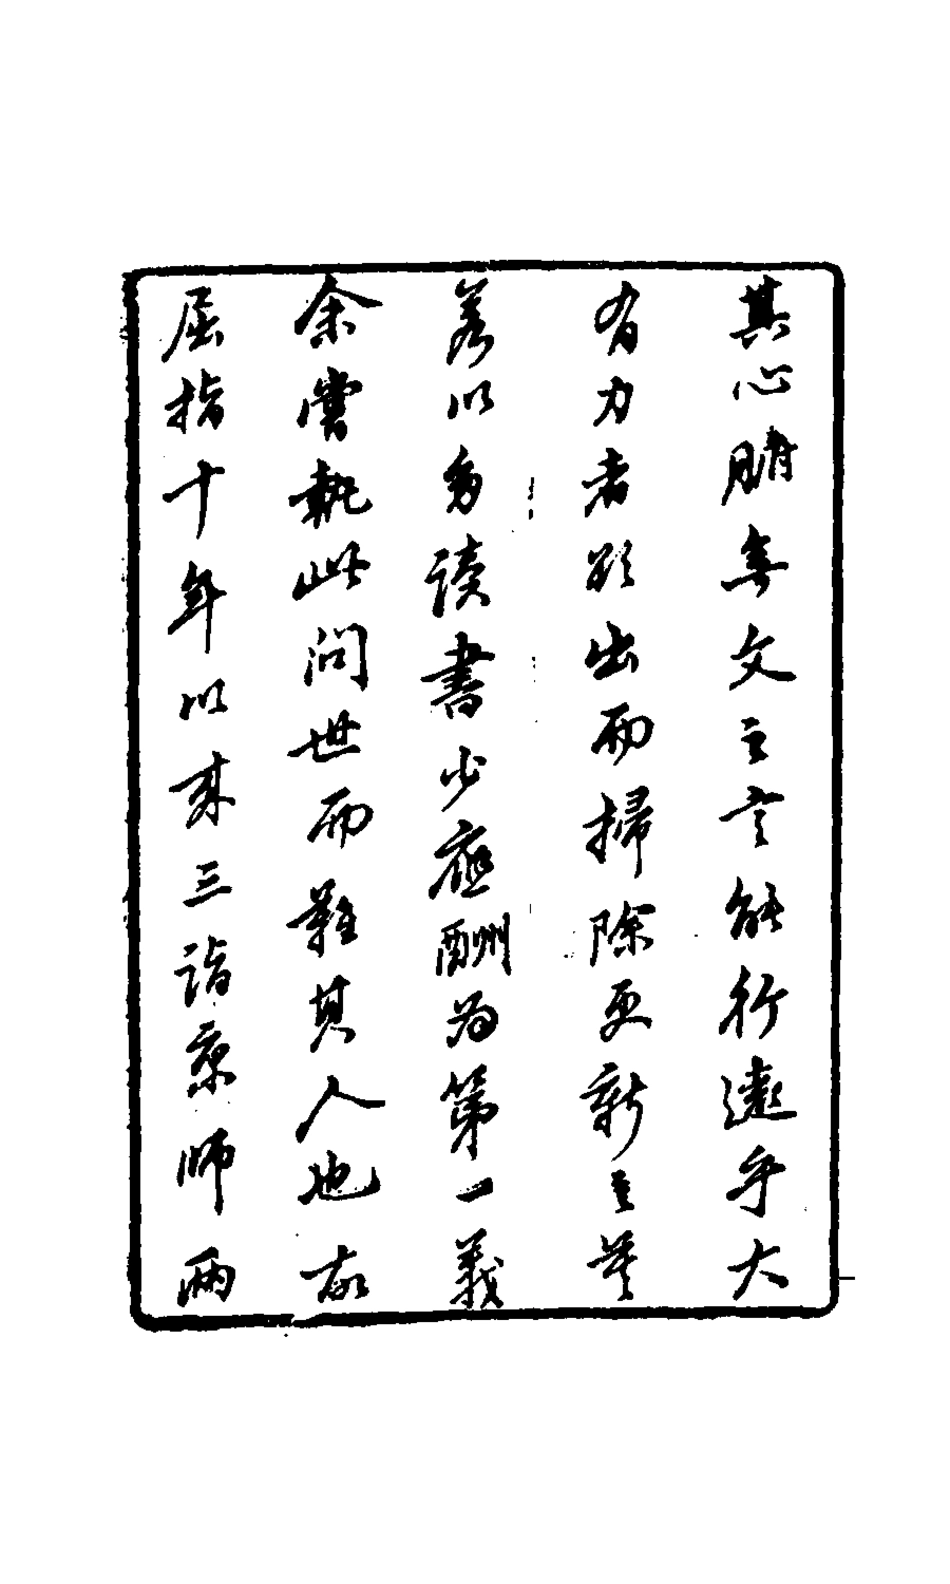 其心腑無文之言能行遠乎大
有力者欲出而掃除更新之莫
若以多讀書少應酬為第一義
余嘗執此問世而難其人也故
屈指十年以來三詣京師兩